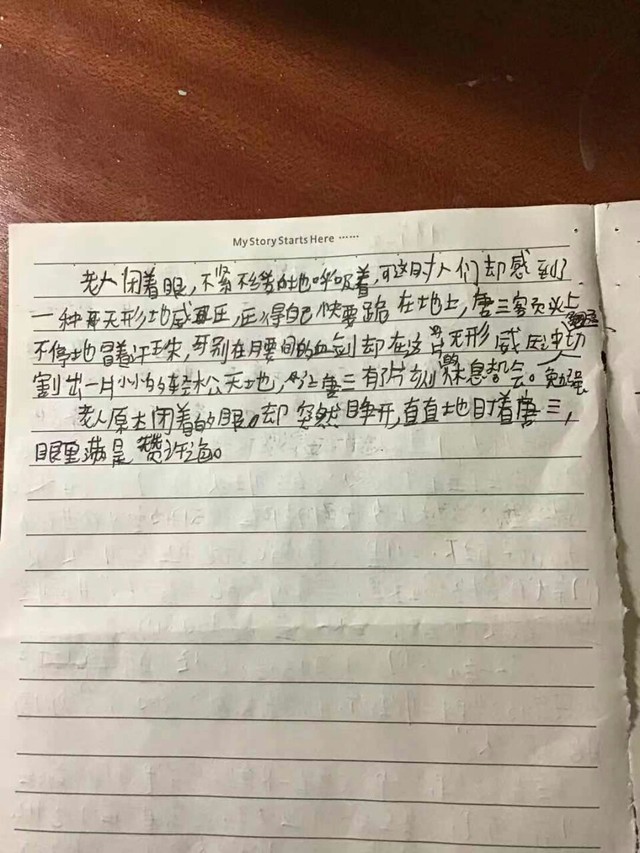 My Story Starts Here ……
老人闭着眼，不紧不慢地呼吸着，可这时人们却感到了
一种无形地威压，压得自己快要跪在地上，唐三额头上
不停地冒着汗珠，可别在腰间的血剑却在这片无形威压中切
割出一片小小的轻松天地，给唐三有片刻的休息机会。勉强
老人原本闭着的眼，却突然睁开，直直地盯着唐三，
眼里满是赞许